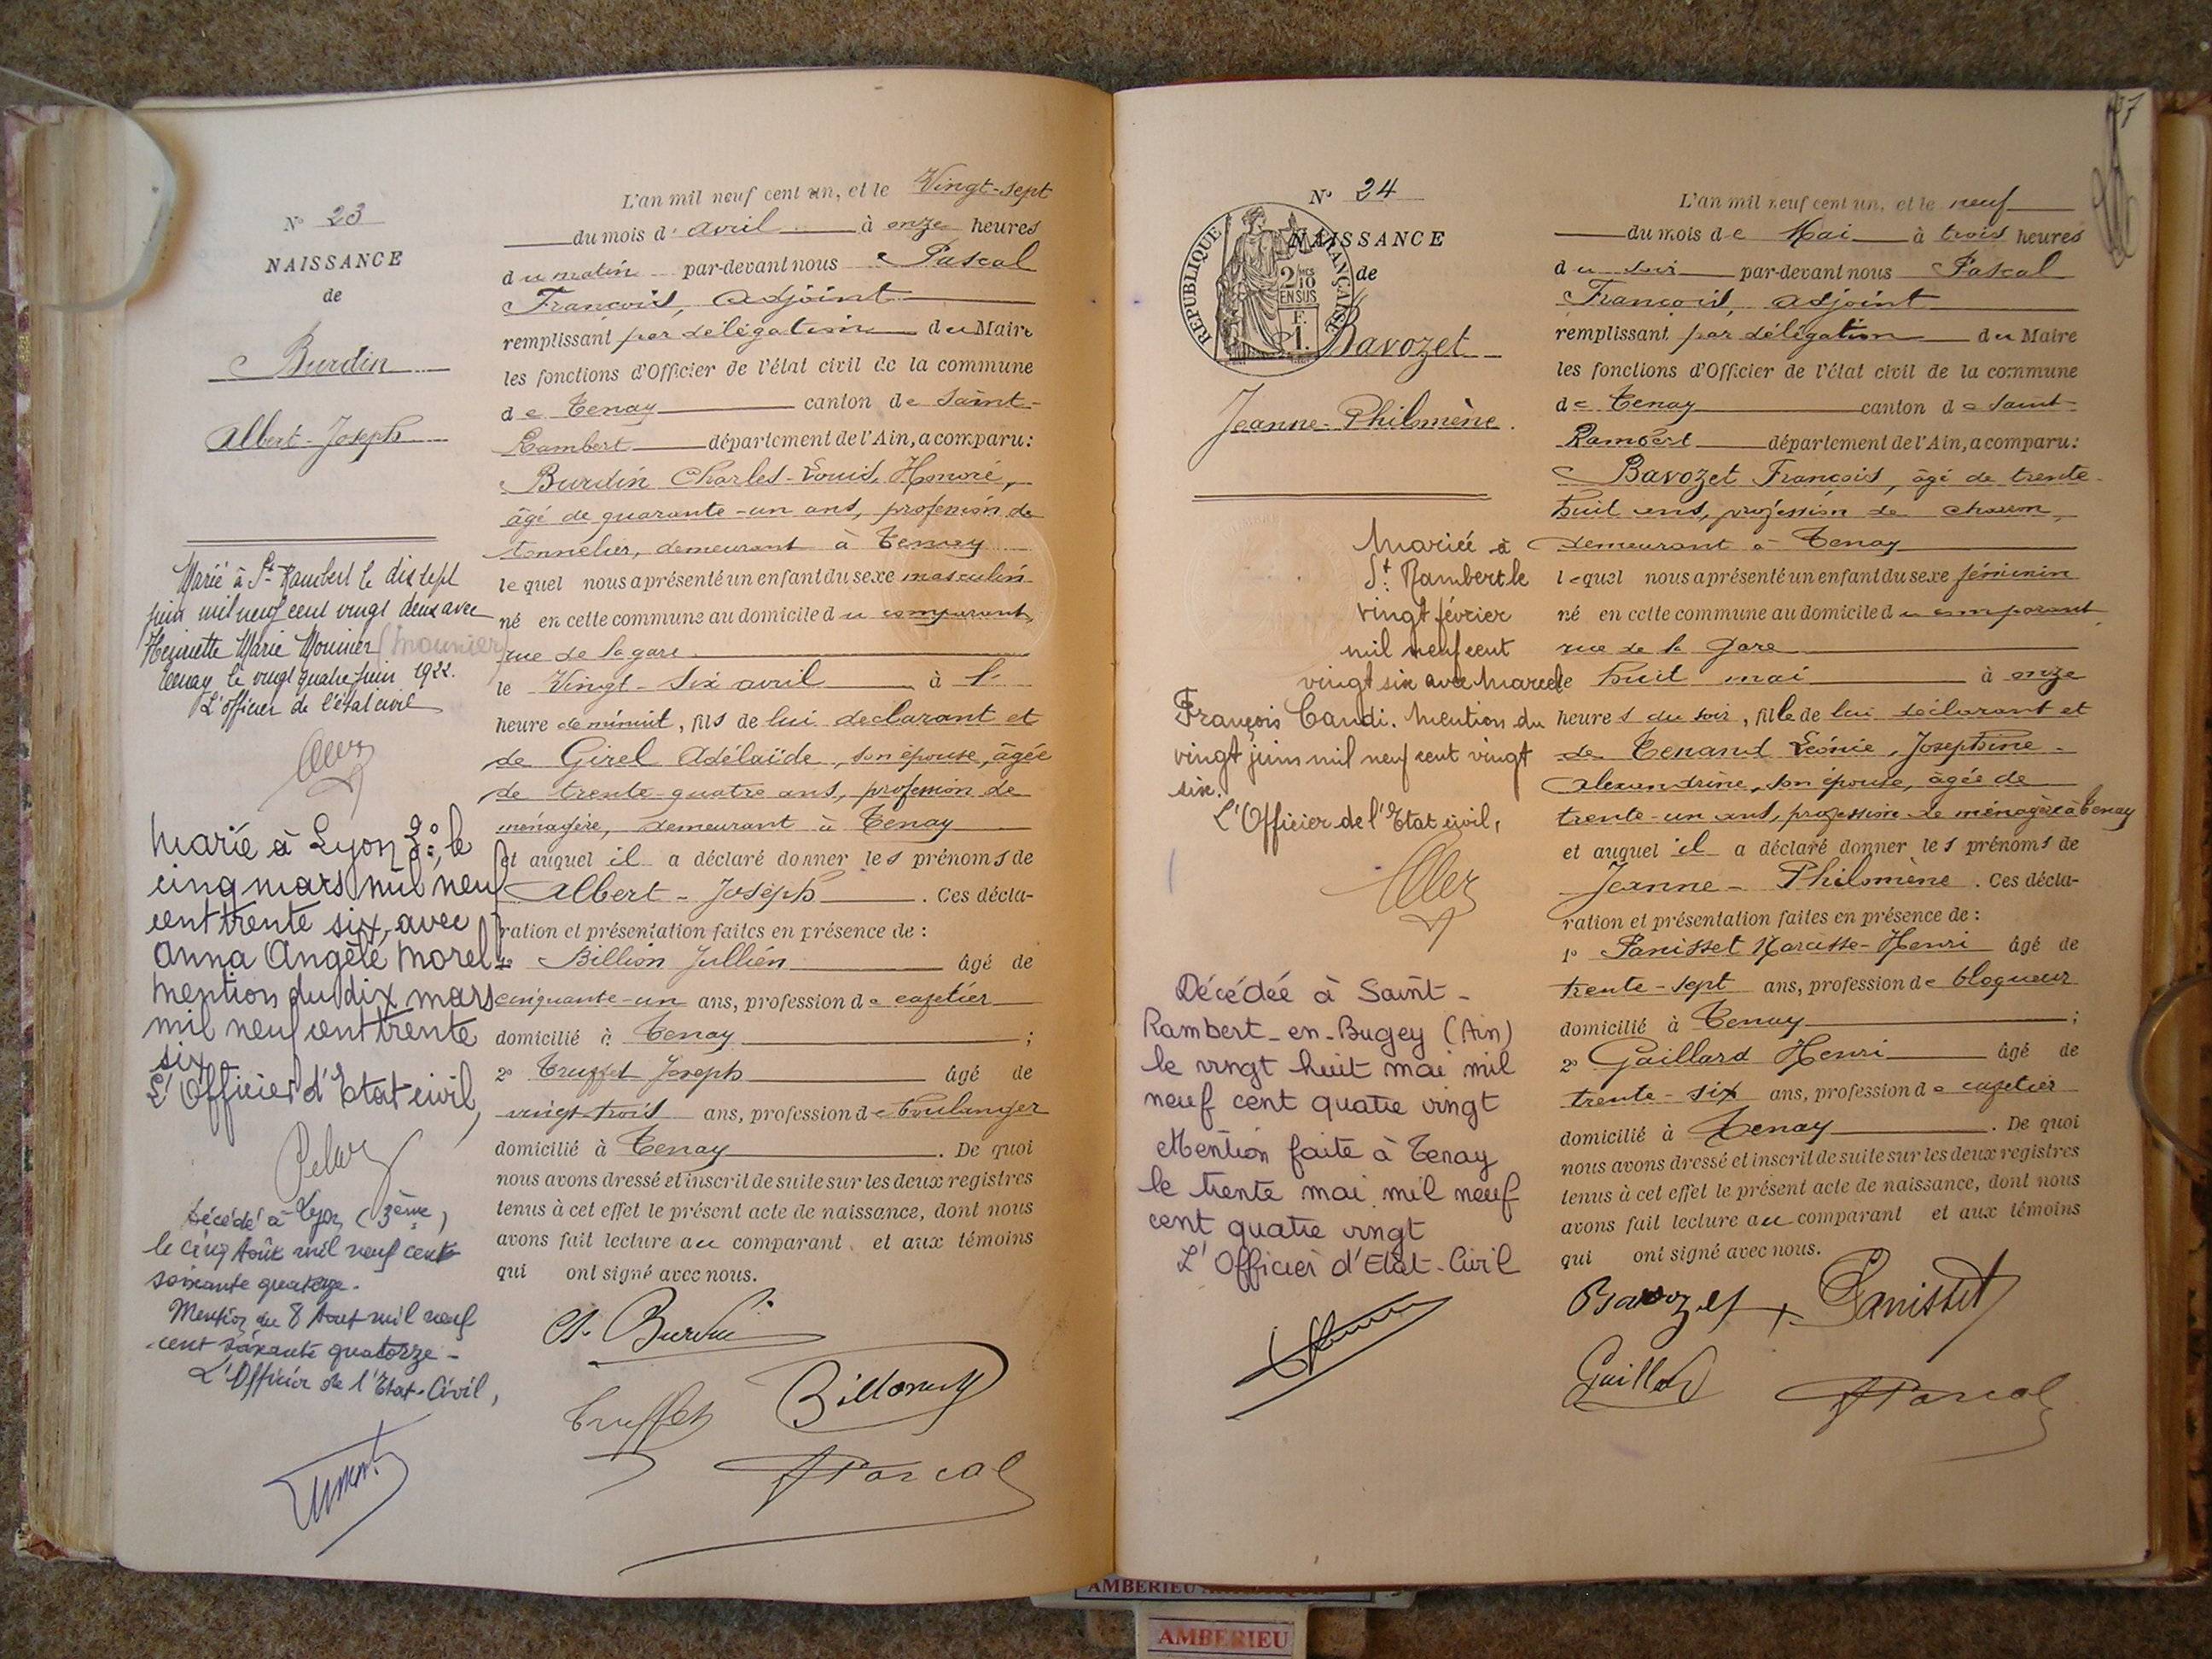 N° 23
NAISSANCE
de
Burdin
Albert-Joseph
Marié à St Rambert le dix sept
juin mil neuf cent vingt deux avec
Henriette Marie Mounier (Mounier)
Tenay le vingt quatre juin 1922.
L'officier de l'état civil
Marié à Lyon 3°, le
cinq mars mil neuf
cent trente six, avec
Anna Angèle Morel
Mention du dix mars
mil neuf cent trente
six
L'Officier d'Etat civil,
Décédé à Lyon (3ème)
le cinq Août mil neuf cent
soixante quatorze.
Mention du 8 Aout mil neuf
cent soixante quatorze -
L'Officier de l'Etat-Civil,
L'an mil neuf cent un, et le Vingt-sept
du mois d'avril à onze heures
du matin par-devant nous Pascal
François, adjoint
remplissant par délégation du Maire
les fonctions d'Officier de l'état civil de la commune
de Tenay canton de Saint-
Rambert département de l'Ain, a comparu:
Burdin Charles-Louis, Honoré,
âgé de quarante-un ans, profession de
tonnelier, demeurant à Tenay
lequel nous a présenté un enfant du sexe masculin
né en cette commune au domicile du comparant,
rue de la gare
le Vingt-six avril à l'
heure de minuit, fils de lui declarant et
de Girel Adélaïde, son épouse, âgée
de trente-quatre ans, profession de
ménagère, demeurant à Tenay
et auquel il a déclaré donner les prénoms de
Albert-Joseph. Ces décla-
ration et présentation faites en présence de :
1° Billion Jullien âgé de
cinquante-un ans, profession de cafetier
domicilié à Tenay ;
2° Truffet Joseph âgé de
vingt-trois ans, profession de boulanger
domicilié à Tenay. De quoi
nous avons dressé et inscrit de suite sur les deux registres
tenus à cet effet le présent acte de naissance, dont nous
avons fait lecture au comparant et aux témoins
qui ont signé avec nous.
Ch. Burdin
Truffet
Pascal
37
N° 24
RÉPUBLIQUE FRANÇAISE
2/10 EN SUS
F. 1.
NAISSANCE
de
Bavozet
Jeanne-Philomène.
Mariée à
St. Rambert le
vingt février
mil neuf cent
vingt six avec Marcel
François Candi. Mention du
vingt juin mil neuf cent vingt
six.
L'Officier de l'Etat civil,
Décédée à Saint-
Rambert-en-Bugey (Ain)
le vingt huit mai mil
neuf cent quatre vingt
Mention faite à Tenay
le trente mai mil neuf
cent quatre vingt
L'Officier d'Etat-Civil
L'an mil neuf cent un, et le neuf
du mois de Mai à trois heures
du soir par-devant nous Pascal
François, adjoint
remplissant par délégation du Maire
les fonctions d'Officier de l'état civil de la commune
de Tenay canton de Saint-
Rambert département de l'Ain, a comparu:
Bavozet François, âgé de trente-
huit ans, profession de
demeurant à Tenay
lequel nous a présenté un enfant du sexe féminin
né en cette commune au domicile du comparant,
rue de la Gare
le huit mai à onze
heures du soir, fille de lui déclarant et
de Tenand Léonie, Joséphine-
Alexandrine, son épouse, âgée de
trente-un ans, profession de ménagère à Tenay
et auquel il a déclaré donner les prénoms de
Jeanne-Philomène. Ces décla-
ration et présentation faites en présence de :
1° Panisset Narcisse-Henri âgé de
trente-sept ans, profession de bloqueur
domicilié à Tenay ;
2° Gaillard Henri âgé de
trente-six ans, profession de cafetier
domicilié à Tenay. De quoi
nous avons dressé et inscrit de suite sur les deux registres
tenus à cet effet le présent acte de naissance, dont nous
avons fait lecture au comparant et aux témoins
qui ont signé avec nous.
Bavozet Panisset
Gaillard
Pascal
AMBERIEU
AMBERIEU